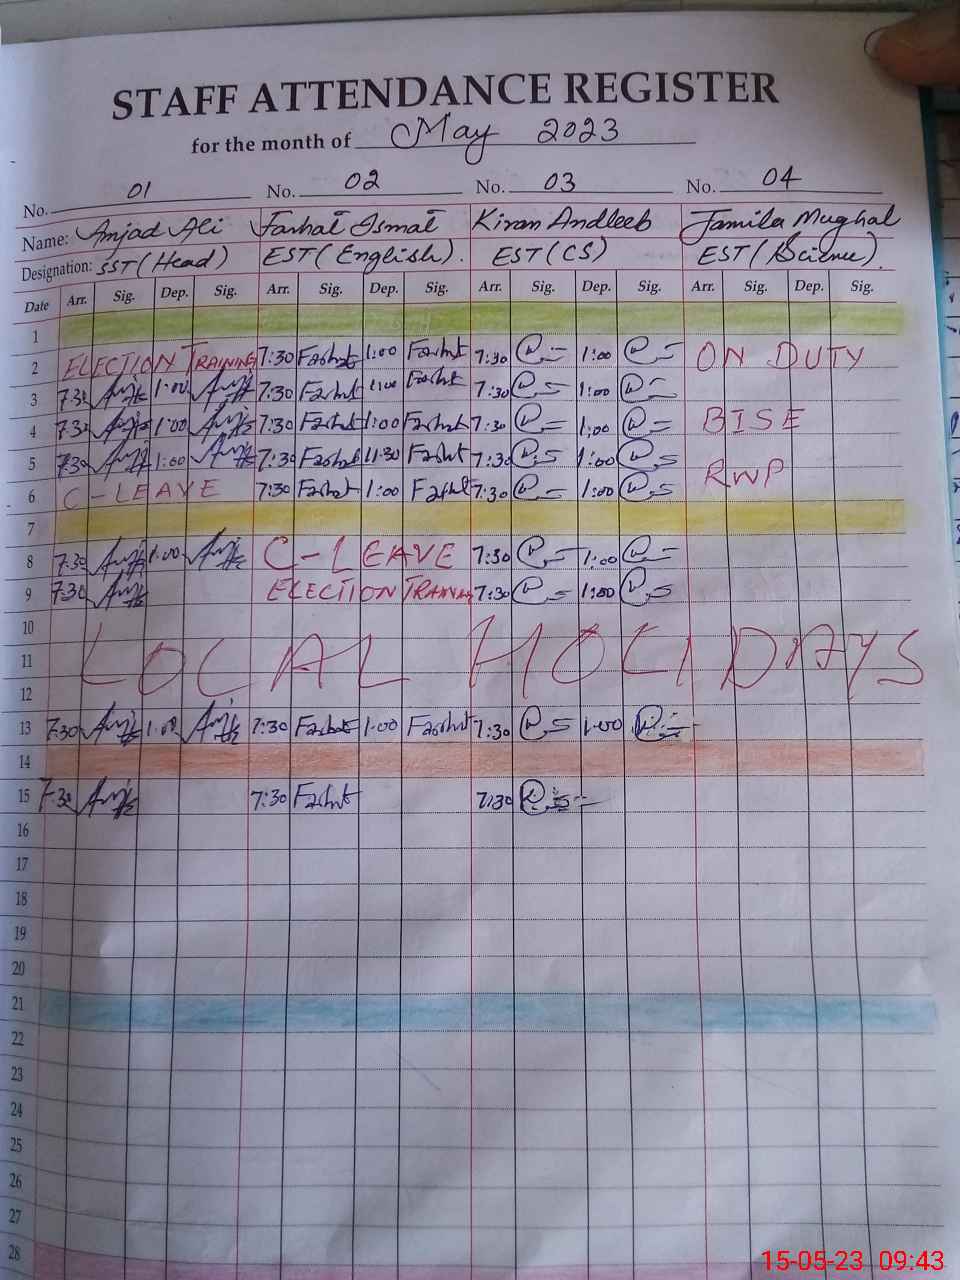 STAFF ATTENDANCE REGISTER
for the month of May 2023
No. 01 No. 02 No. 03 No. 04
Name: Amjad Ali Farhat Ismat Kiran Andleeb Jamila Mughal
Designation: SST (Head) EST (English). EST (CS) EST (Science).
Date Arr. Sig. Dep. Sig. Arr. Sig. Dep. Sig. Arr. Sig. Dep. Sig. Arr. Sig. Dep. Sig.
1
2 ELECTION TRAINING 7:30 Farhat 1:00 Farhat 7:30 1:00 ON DUTY
3 7:30 1:00 7:30 Farhat 1:00 Farhat 7:30 1:00
4 7:30 1:00 7:30 Farhat 1:00 Farhat 7:30 1:00 BISE
5 7:30 1:00 7:30 Farhat 11:30 Farhat 7:30 1:00 RWP
6 C-LEAVE 7:30 Farhat 1:00 Farhat 7:30 1:00
7
8 7:30 1:00 C-LEAVE 7:30 1:00
9 7:30 ELECTION TRAINING 7:30 1:00
10
11 LOCAL HOLIDAYS
12
13 7:30 1:00 7:30 Farhat 1:00 Farhat 7:30 1:00
14
15 7:30 7:30 Farhat 7:30
16
17
18
19
20
21
22
23
24
25
26
27
28
15-05-23 09:43